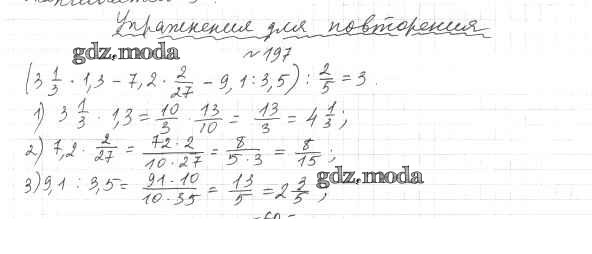 Упражнения для повторения
gdz.moda
№197
(3 1/3 · 1,3 − 7,2 · 2/27 − 9,1 : 3,5) : 2/5 = 3.
1) 3 1/3 · 1,3 = 10/3 · 13/10 = 13/3 = 4 1/3;
2) 7,2 · 2/27 = 72·2/10·27 = 8/5·3 = 8/15;
gdz.moda
3) 9,1 : 3,5 = 91·10/10·35 = 13/5 = 2 3/5;